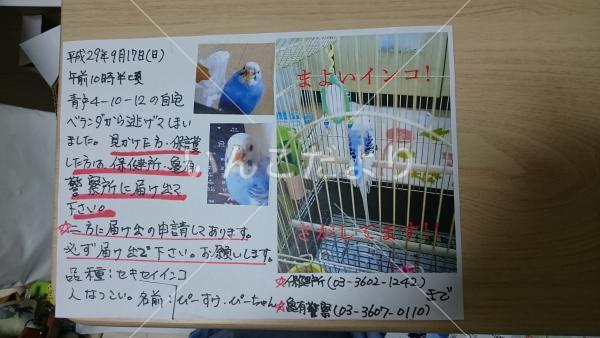 平成29年9月17日(日)
午前10時半頃
青戸4-10-12の自宅
ベランダから逃げてしまい
ました。見かけた方・保護
した方は保健所・亀有
警察所に届け出て
下さい。
☆二方に届け出の申請してあります。
必ず届け出で下さい。お願いします。
品種:セキセイインコ
人なつこい。名前:ぴーすけ・ぴーちゃん
まよいインコ!
さがしてます!!
☆保健所(03-3602-1242)
☆亀有警察(03-3607-0110)まで
いんこだより